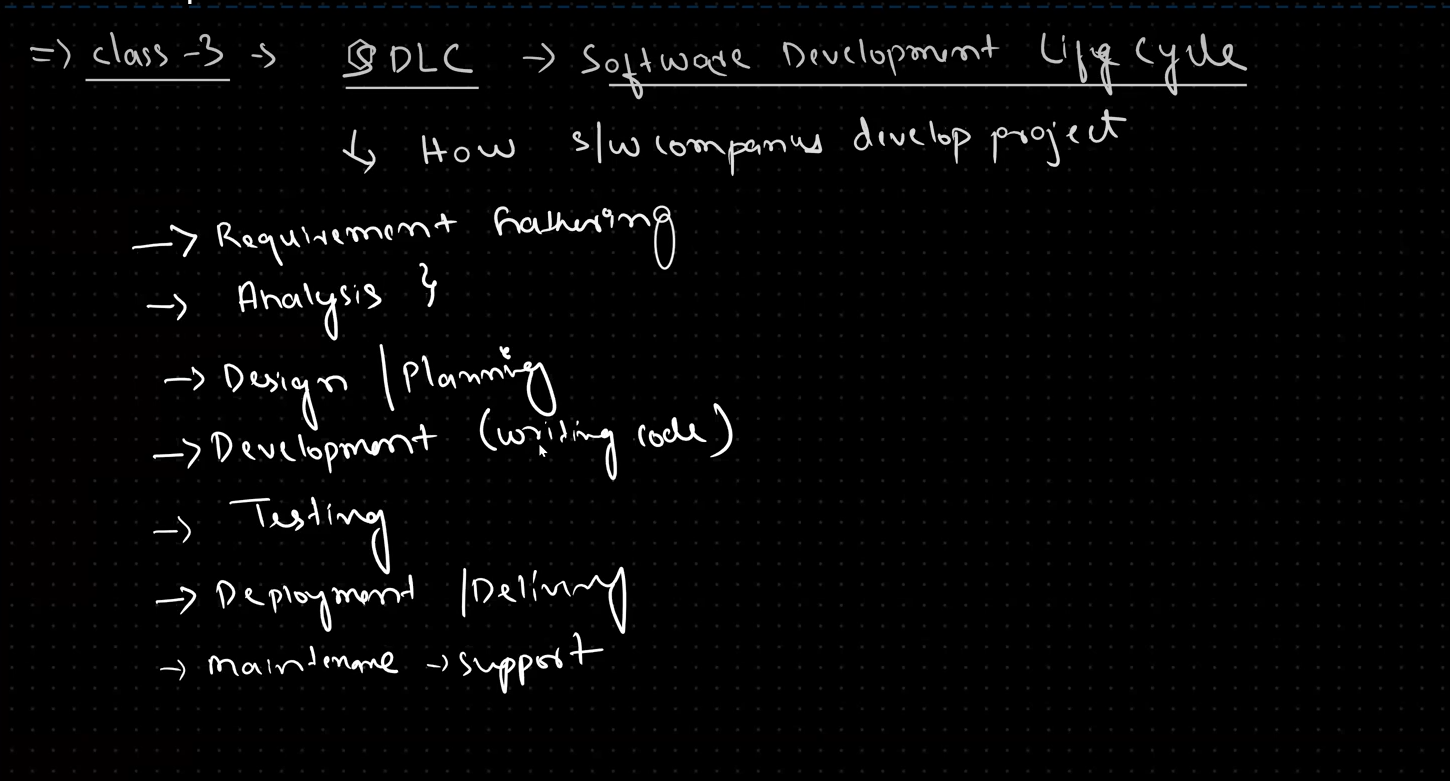 => class -3 -> SDLC -> Software Development Life Cycle
↳ How s/w companies develop project
-> Requirement Gathering
-> Analysis }
-> Design / Planning
-> Development (writing code)
-> Testing
-> Deployment / Delivery
-> maintenance -> support